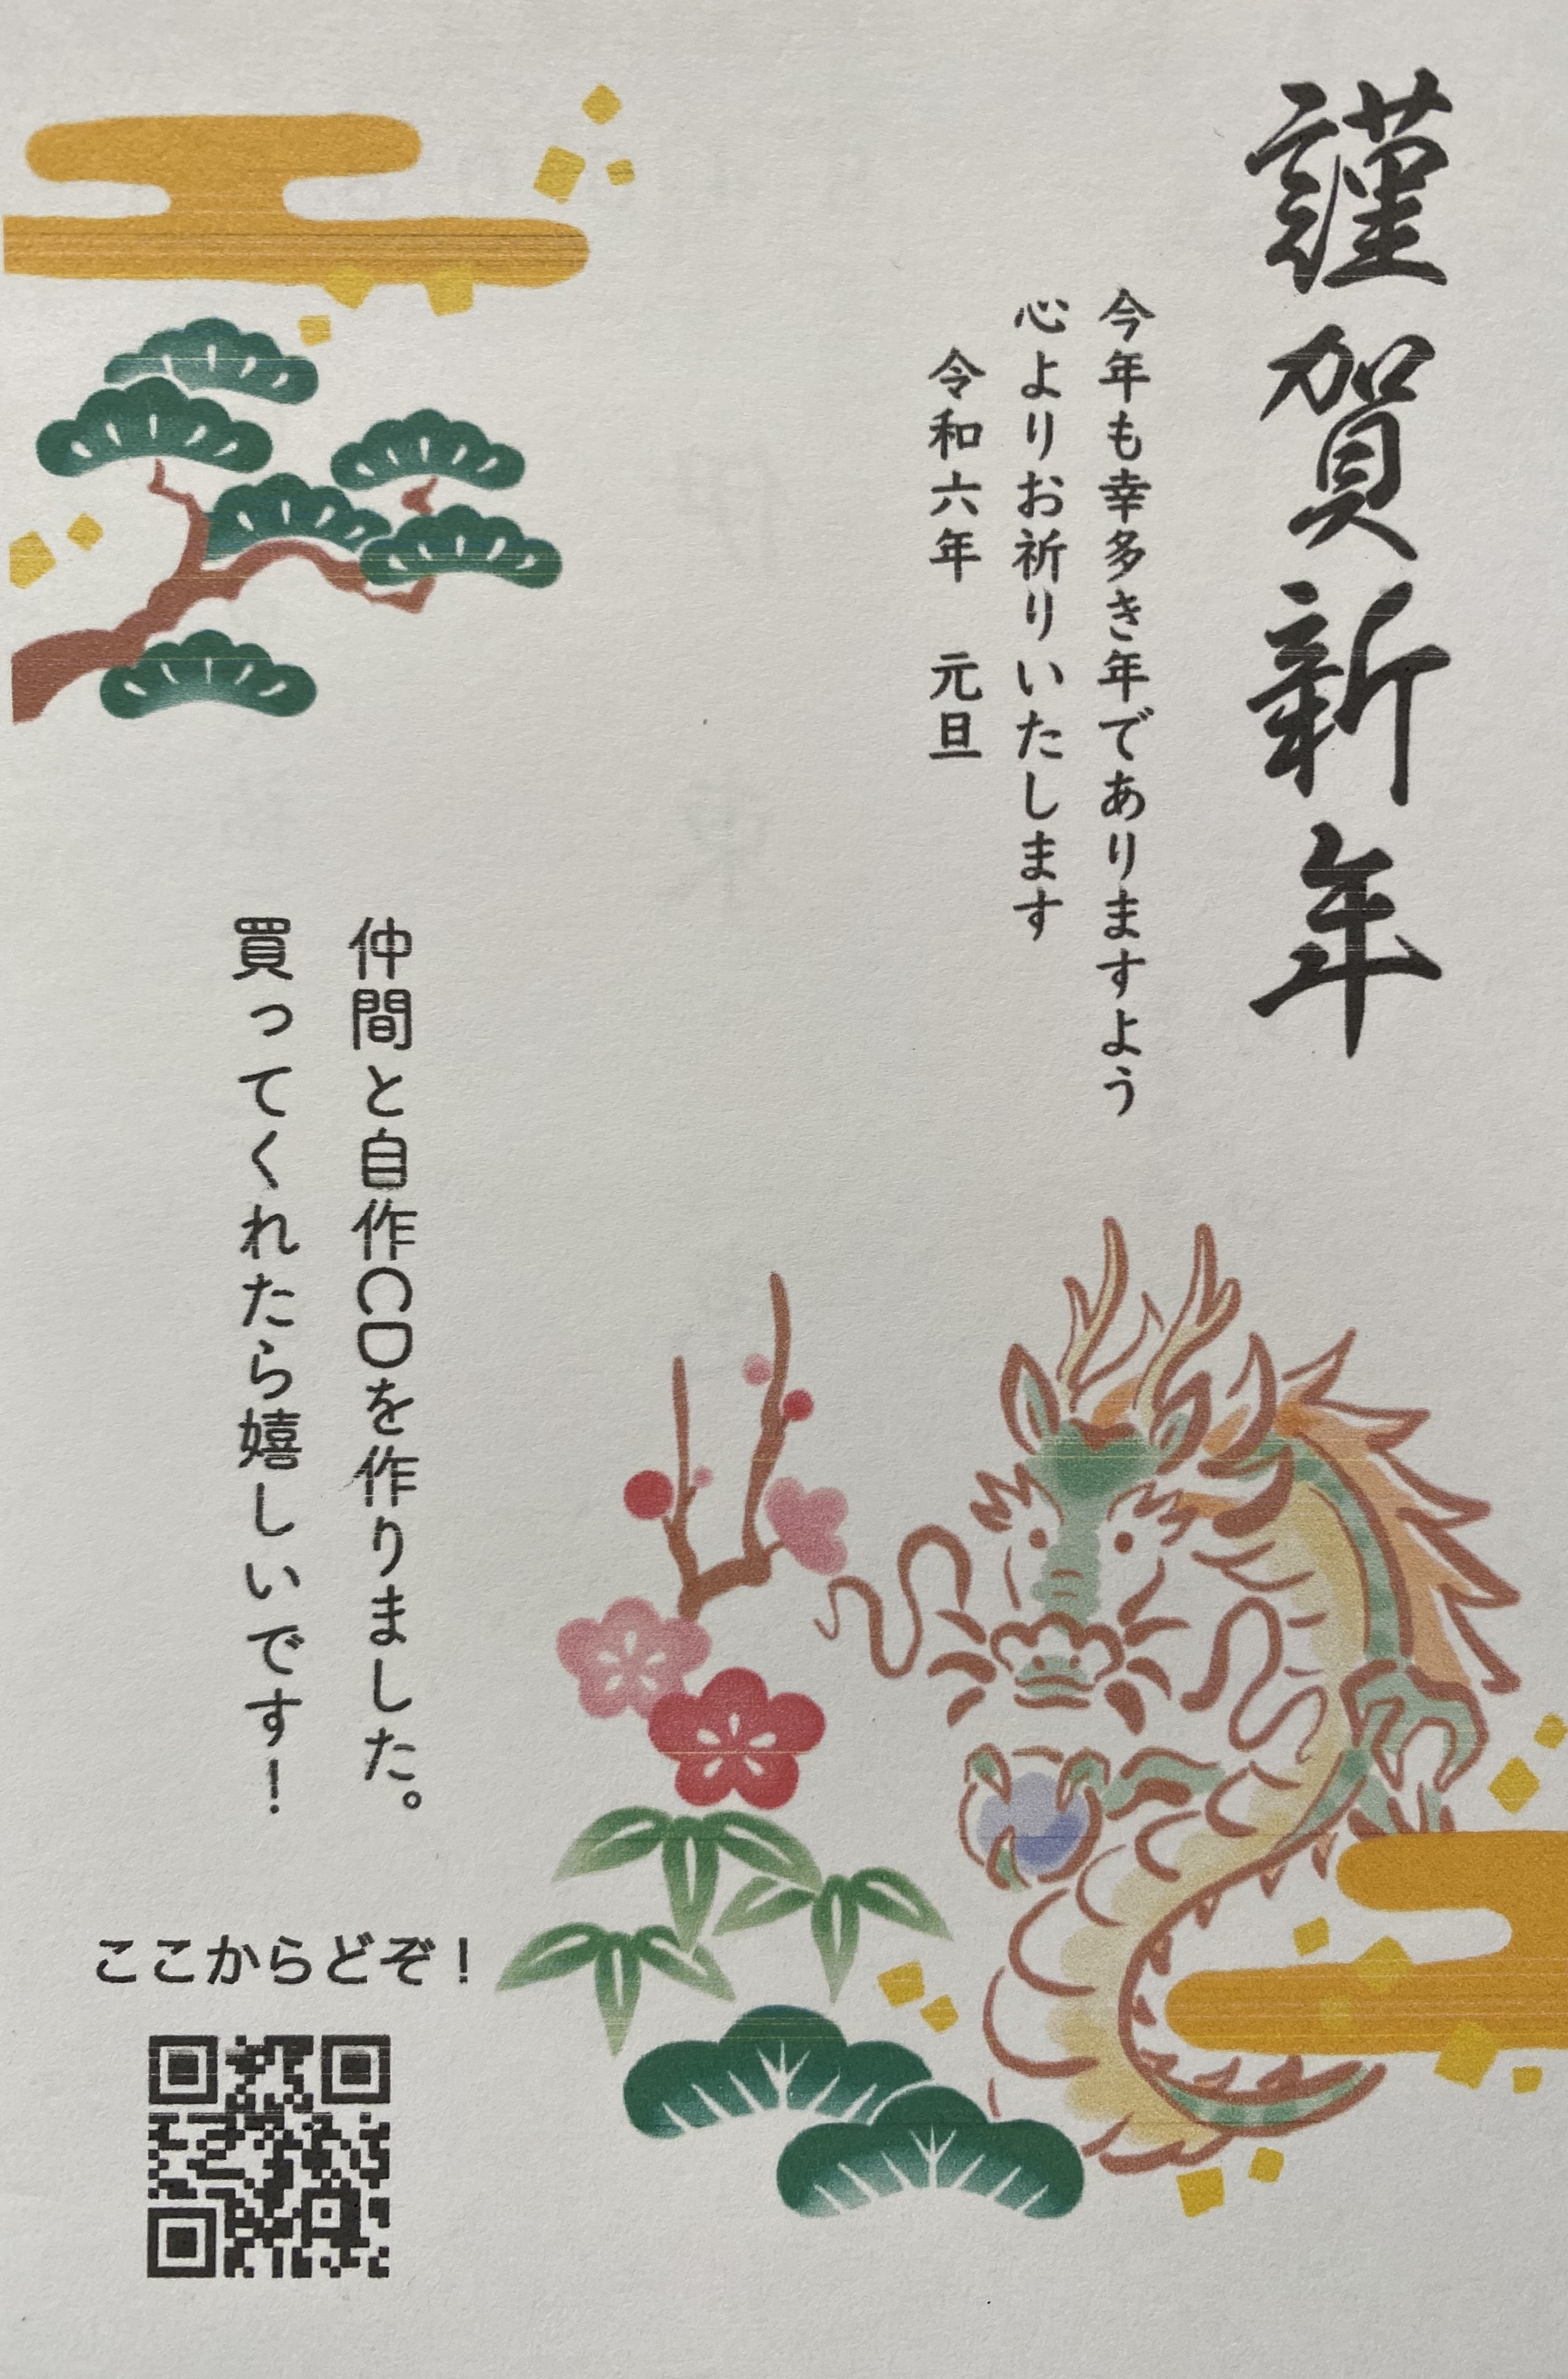 謹賀新年
今年も幸多き年でありますよう
心よりお祈りいたします
令和六年 元旦
仲間と自作CDを作りました。
買ってくれたら嬉しいです!
ここからどぞ!